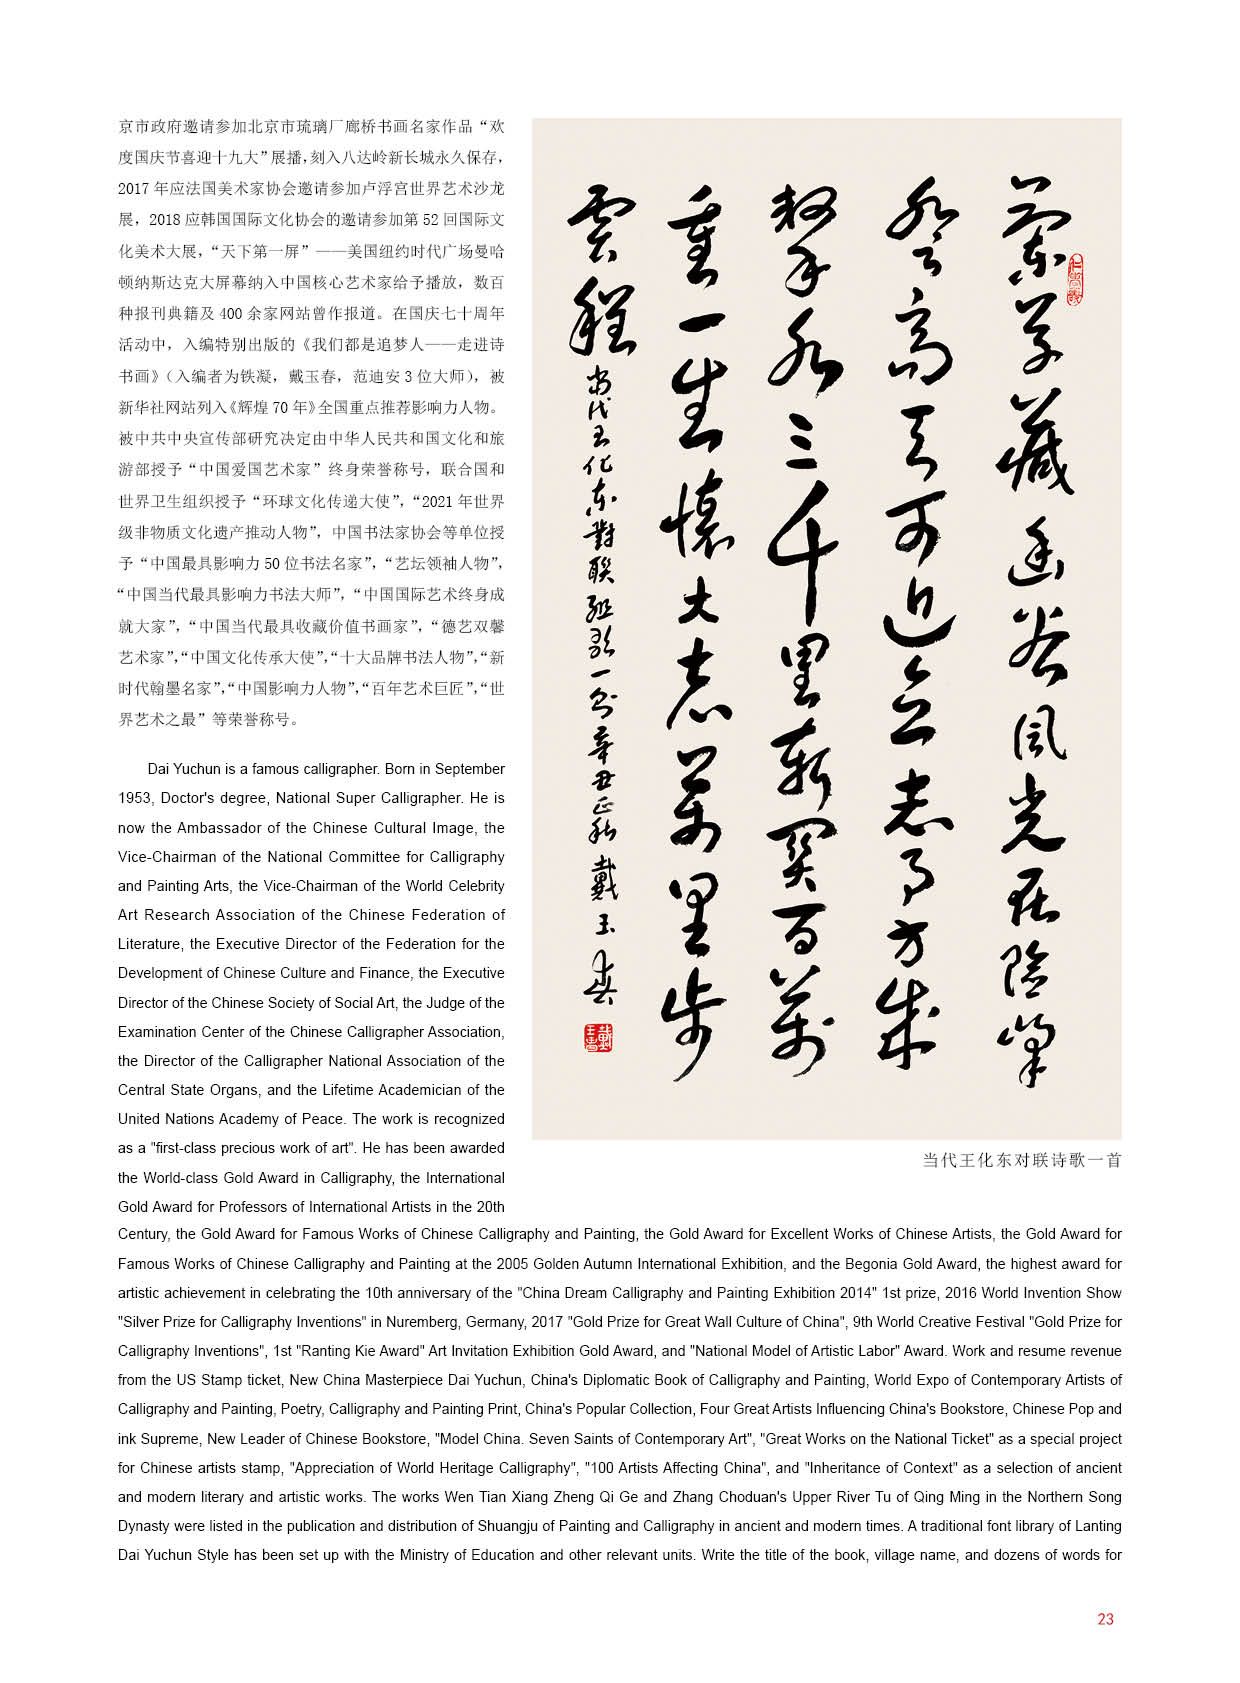 京市政府邀请参加北京市琉璃厂廊桥书画名家作品“欢
度国庆节喜迎十九大”展播，刻入八达岭新长城永久保存，
2017 年应法国美术家协会邀请参加卢浮宫世界艺术沙龙
展，2018 应韩国国际文化协会的邀请参加第 52 回国际文
化美术大展，“天下第一屏”——美国纽约时代广场曼哈
顿纳斯达克大屏幕纳入中国核心艺术家给予播放，数百
种报刊典籍及 400 余家网站曾作报道。在国庆七十周年
活动中，入编特别出版的《我们都是追梦人——走进诗
书画》（入编者为铁凝，戴玉春，范迪安 3 位大师），被
新华社网站列入《辉煌 70 年》全国重点推荐影响力人物。
被中共中央宣传部研究决定由中华人民共和国文化和旅
游部授予“中国爱国艺术家”终身荣誉称号，联合国和
世界卫生组织授予“环球文化传递大使”，“2021 年世界
级非物质文化遗产推动人物”，中国书法家协会等单位授
予“中国最具影响力 50 位书法名家”，“艺坛领袖人物”，
“中国当代最具影响力书法大师”，“中国国际艺术终身成
就大家”，“中国当代最具收藏价值书画家”，“德艺双馨
艺术家”，“中国文化传承大使”，“十大品牌书法人物”，“新
时代翰墨名家”，“中国影响力人物”，“百年艺术巨匠”，“世
界艺术之最”等荣誉称号。
Dai Yuchun is a famous calligrapher. Born in September
1953, Doctor's degree, National Super Calligrapher. He is
now the Ambassador of the Chinese Cultural Image, the
Vice-Chairman of the National Committee for Calligraphy
and Painting Arts, the Vice-Chairman of the World Celebrity
Art Research Association of the Chinese Federation of
Literature, the Executive Director of the Federation for the
Development of Chinese Culture and Finance, the Executive
Director of the Chinese Society of Social Art, the Judge of the
Examination Center of the Chinese Calligrapher Association,
the Director of the Calligrapher National Association of the
Central State Organs, and the Lifetime Academician of the
United Nations Academy of Peace. The work is recognized
as a "first-class precious work of art". He has been awarded
the World-class Gold Award in Calligraphy, the International
Gold Award for Professors of International Artists in the 20th
Century, the Gold Award for Famous Works of Chinese Calligraphy and Painting, the Gold Award for Excellent Works of Chinese Artists, the Gold Award for
Famous Works of Chinese Calligraphy and Painting at the 2005 Golden Autumn International Exhibition, and the Begonia Gold Award, the highest award for
artistic achievement in celebrating the 10th anniversary of the "China Dream Calligraphy and Painting Exhibition 2014" 1st prize, 2016 World Invention Show
"Silver Prize for Calligraphy Inventions" in Nuremberg, Germany, 2017 "Gold Prize for Great Wall Culture of China", 9th World Creative Festival "Gold Prize for
Calligraphy Inventions", 1st "Ranting Kie Award" Art Invitation Exhibition Gold Award, and "National Model of Artistic Labor" Award. Work and resume revenue
from the US Stamp ticket, New China Masterpiece Dai Yuchun, China's Diplomatic Book of Calligraphy and Painting, World Expo of Contemporary Artists of
Calligraphy and Painting, Poetry, Calligraphy and Painting Print, China's Popular Collection, Four Great Artists Influencing China's Bookstore, Chinese Pop and
ink Supreme, New Leader of Chinese Bookstore, "Model China. Seven Saints of Contemporary Art", "Great Works on the National Ticket" as a special project
for Chinese artists stamp, "Appreciation of World Heritage Calligraphy", "100 Artists Affecting China", and "Inheritance of Context" as a selection of ancient
and modern literary and artistic works. The works Wen Tian Xiang Zheng Qi Ge and Zhang Choduan's Upper River Tu of Qing Ming in the Northern Song
Dynasty were listed in the publication and distribution of Shuangju of Painting and Calligraphy in ancient and modern times. A traditional font library of Lanting
Dai Yuchun Style has been set up with the Ministry of Education and other relevant units. Write the title of the book, village name, and dozens of words for
蘭草藏幽谷風光在險峰
登高天可近立志事方成
擊水三千里斬關百萬
重一生懷大志萬里步
雲程
当代王化东對聯歌一首辛丑正秋戴玉春
戴玉春
当代王化东对联诗歌一首
23